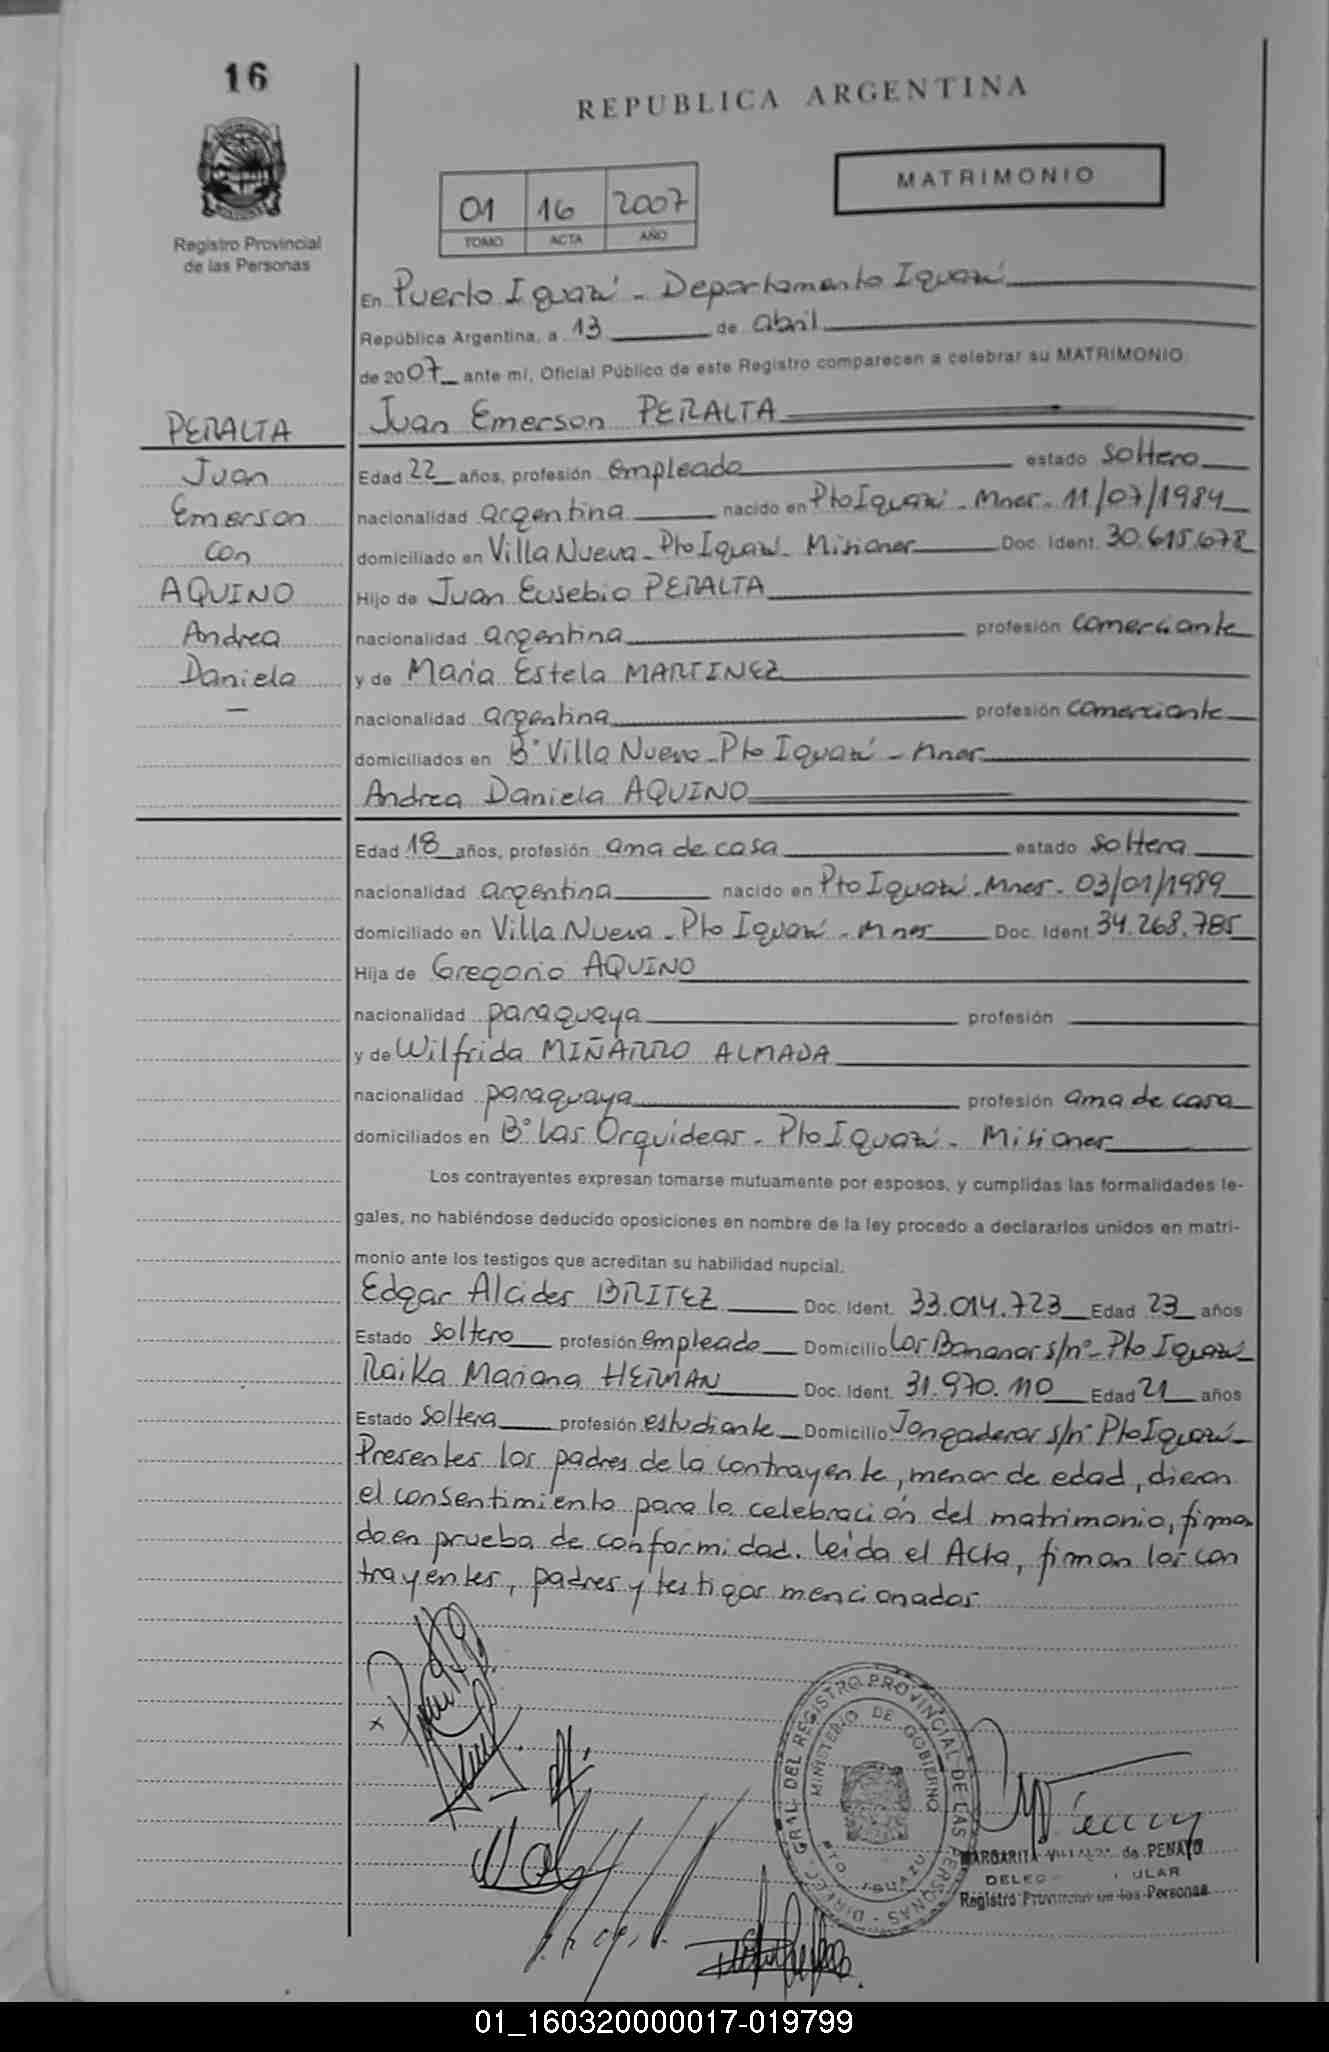 16
REPUBLICA ARGENTINA
MATRIMONIO
01 16 2007
TOMO ACTA AÑO
Registro Provincial
de las Personas
En Puerto Iguazú - Departamento Iguazú
República Argentina, a 13 de abril
de 2007 ante mí, Oficial Público de este Registro comparecen a celebrar su MATRIMONIO:
PERALTA
Juan
Emerson
con
AQUINO
Andrea
Daniela
Juan Emerson PERALTA
Edad 22 años, profesión empleado estado soltero
nacionalidad argentina nacido en Pto Iguazú - Mnes - 11/07/1984
domiciliado en Villa Nueva - Pto Iguazú - Misiones Doc. Ident. 30.615.678
Hijo de Juan Eusebio PERALTA
nacionalidad argentina profesión comerciante
y de María Estela MARTINEZ
nacionalidad argentina profesión comerciante
domiciliados en B° Villa Nueva - Pto Iguazú - Mnes
Andrea Daniela AQUINO
Edad 18 años, profesión ama de casa estado soltera
nacionalidad argentina nacido en Pto Iguazú - Mnes - 03/01/1989
domiciliado en Villa Nueva - Pto Iguazú - Mnes Doc. Ident. 34.268.785
Hija de Gregorio AQUINO
nacionalidad paraguaya profesión
y de Wilfrida MIÑARRO ALMADA
nacionalidad paraguaya profesión ama de casa
domiciliados en B° Las Orquideas - Pto Iguazú - Misiones
Los contrayentes expresan tomarse mutuamente por esposos, y cumplidas las formalidades le-
gales, no habiéndose deducido oposiciones en nombre de la ley procedo a declararlos unidos en matri-
monio ante los testigos que acreditan su habilidad nupcial.
Edgar Alcides BRITEZ Doc. Ident. 33.014.723 Edad 23 años
Estado soltero profesión empleado Domicilio Los Bananos s/n° - Pto Iguazú
Raika Mariana HERMAN Doc. Ident. 31.970.110 Edad 21 años
Estado soltera profesión estudiante Domicilio Jongaderos s/n° Pto Iguazú
Presentes los padres de la contrayente, menor de edad, dieron
el consentimiento para la celebración del matrimonio, firman
do en prueba de conformidad. Leída el Acta, firman los con
trayentes, padres y testigos mencionados
DIREC. GRAL. DEL REGISTRO PROVINCIAL DE LAS PERSONAS
MINISTERIO DE GOBIERNO
PTO. IGUAZU
MARGARITA de PENAYO
Registro Provincial de las Personas
01_160320000017-019799